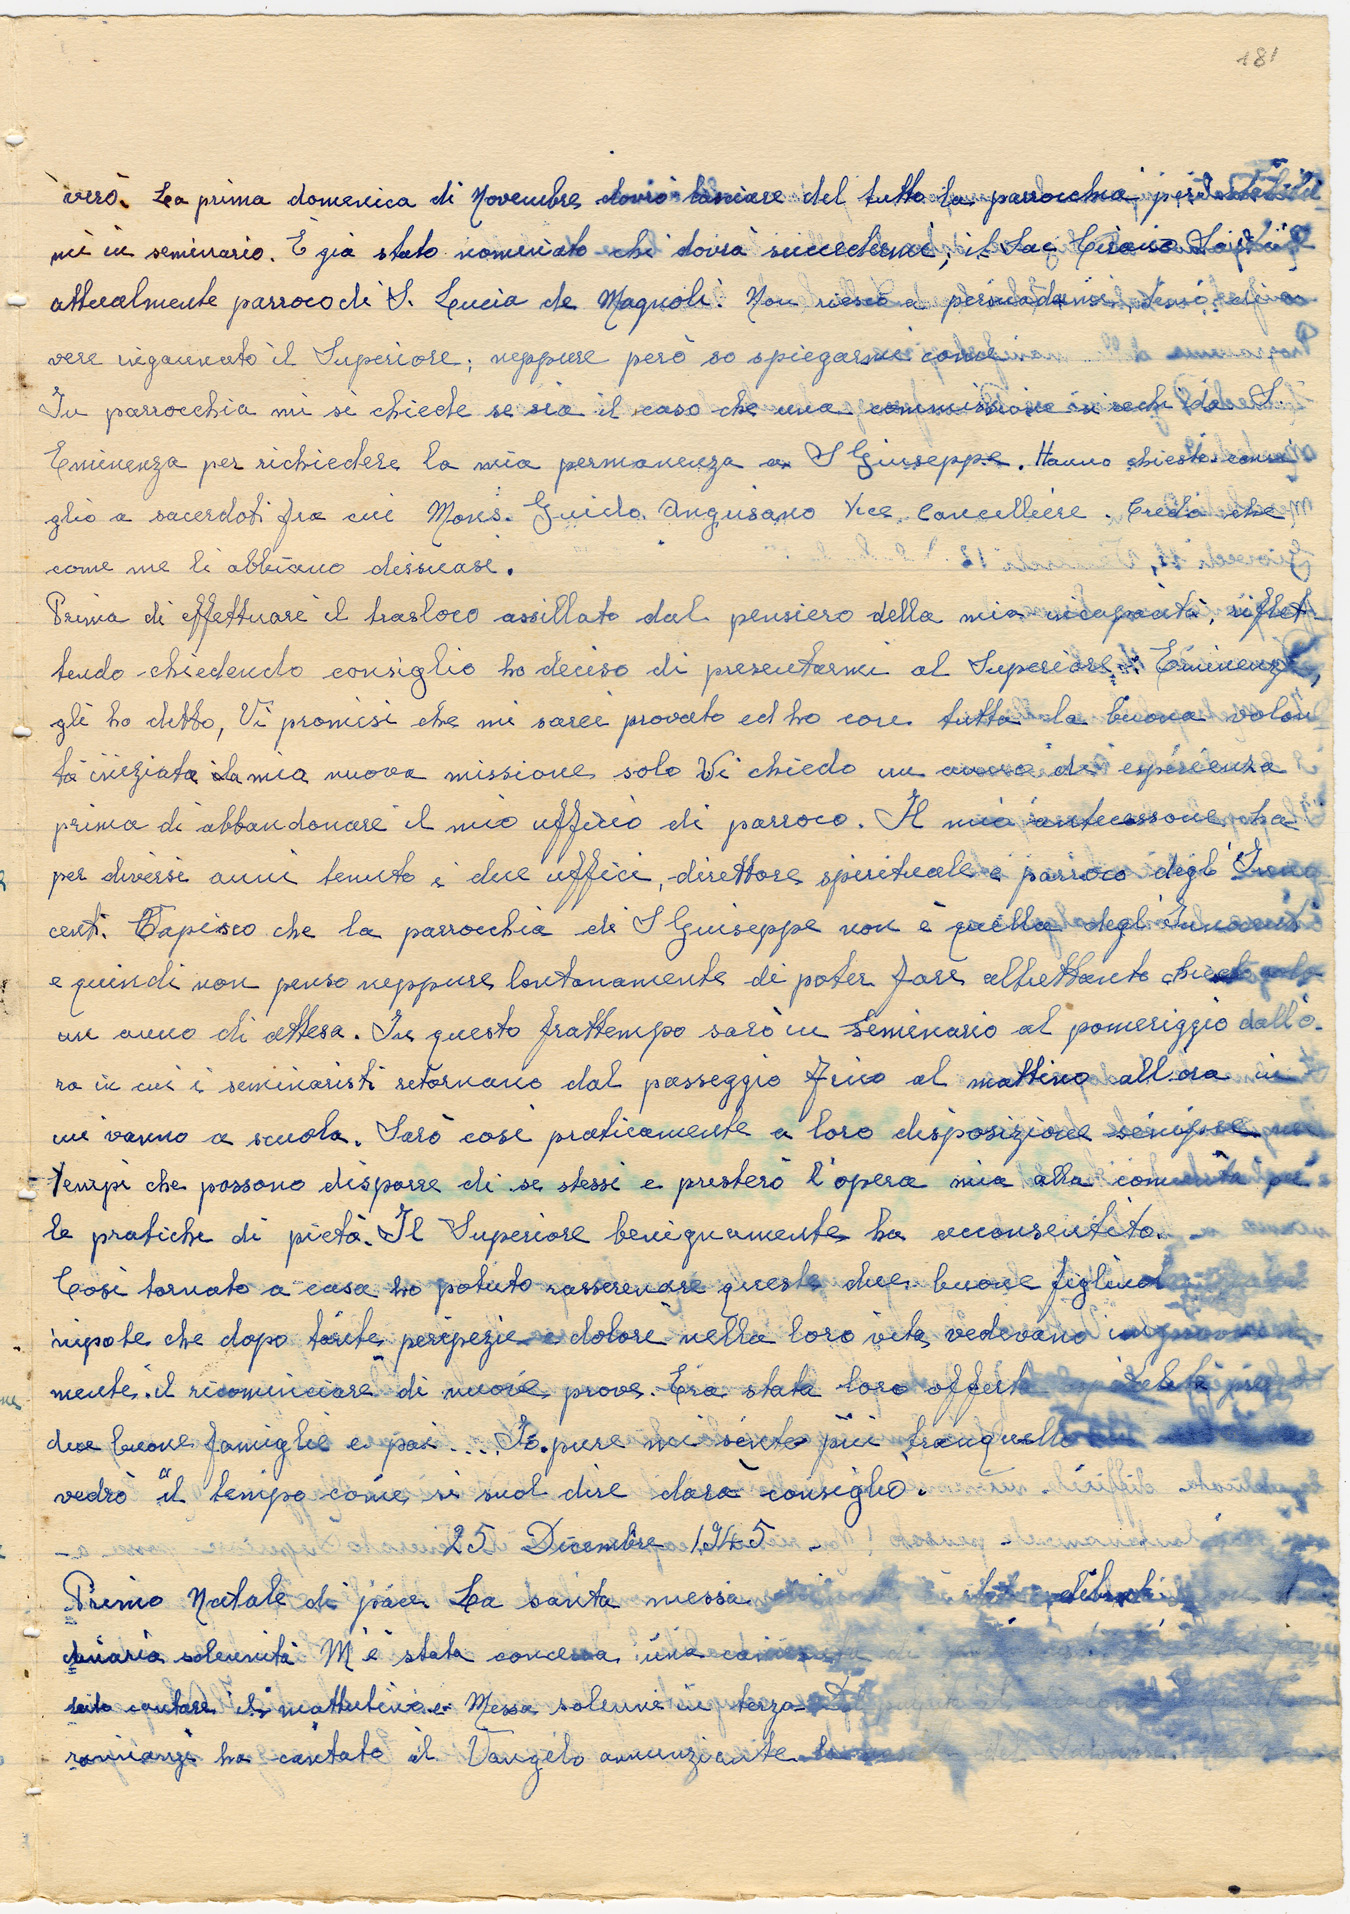 181
verrò. La prima domenica di Novembre dovrò lasciare del tutto la parrocchia per
mi in seminario. È già stato nominato chi dovrà succedermi; il Sac
attualmente parroco di S. Lucia de Magnoli. Non riesco a persuadermi, temo, di a
vere ingannato il Superiore; neppure però so spiegarmi come.
In parrocchia mi si chiede se sia il caso che una commissione si rechi da S.
Eminenza per richiedere la mia permanenza a S Giuseppe. Hanno chiesto consi
glio a sacerdoti fra cui Mons. Guido Angusano Vice Cancelliere. Credo che
come me li abbiano dissuasi.
Prima di effettuare il trasloco assillato dal pensiero della mia incapacità, riflet-
tendo chiedendo consiglio ho deciso di presentarmi al Superiore: Eminenza,
gli ho detto, Vi promisi che mi sarei provato ed ho con tutta la buona volon
tà iniziata la mia nuova missione solo Vi chiedo un anno di esperienza
prima di abbandonare il mio ufficio di parroco. Il mio antecessore ha
per diversi anni tenuto i due uffici, direttore spirituale e parroco degl' Inno
centi. Capisco che la parrocchia di S Giuseppe non è quella degl' Innocenti
e quindi non penso neppure lontanamente di poter fare altrettanto chiedo solo
un anno di attesa. In questo frattempo sarò in seminario al pomeriggio dall'o-
ra in cui i seminaristi ritornano dal passeggio fino al mattino all'ora in
cui vanno a scuola. Sarò così praticamente a loro disposizione sempre nei
tempi che possono disporre di se stessi e presterò l'opera mia alla comunità per
le pratiche di pietà. Il Superiore benignamente ha acconsentito.
Così tornato a casa ho potuto rasserenare queste due buone figliuole
nipote che dopo tante peripezie e dolori nella loro vita vedevano
mente il ricominciare di nuove prove. Era stata loro offerta
due buone famiglie e poi .... Io pure mi sento più tranquillo
vedrò il tempo come si suol dire darà consiglio.
25 Dicembre 1945
Primo Natale di pace La santa messa
solennità M'è stata concessa una
cantare il mattutino e Messa solenne in terza
ha cantato il Vangelo annunziante